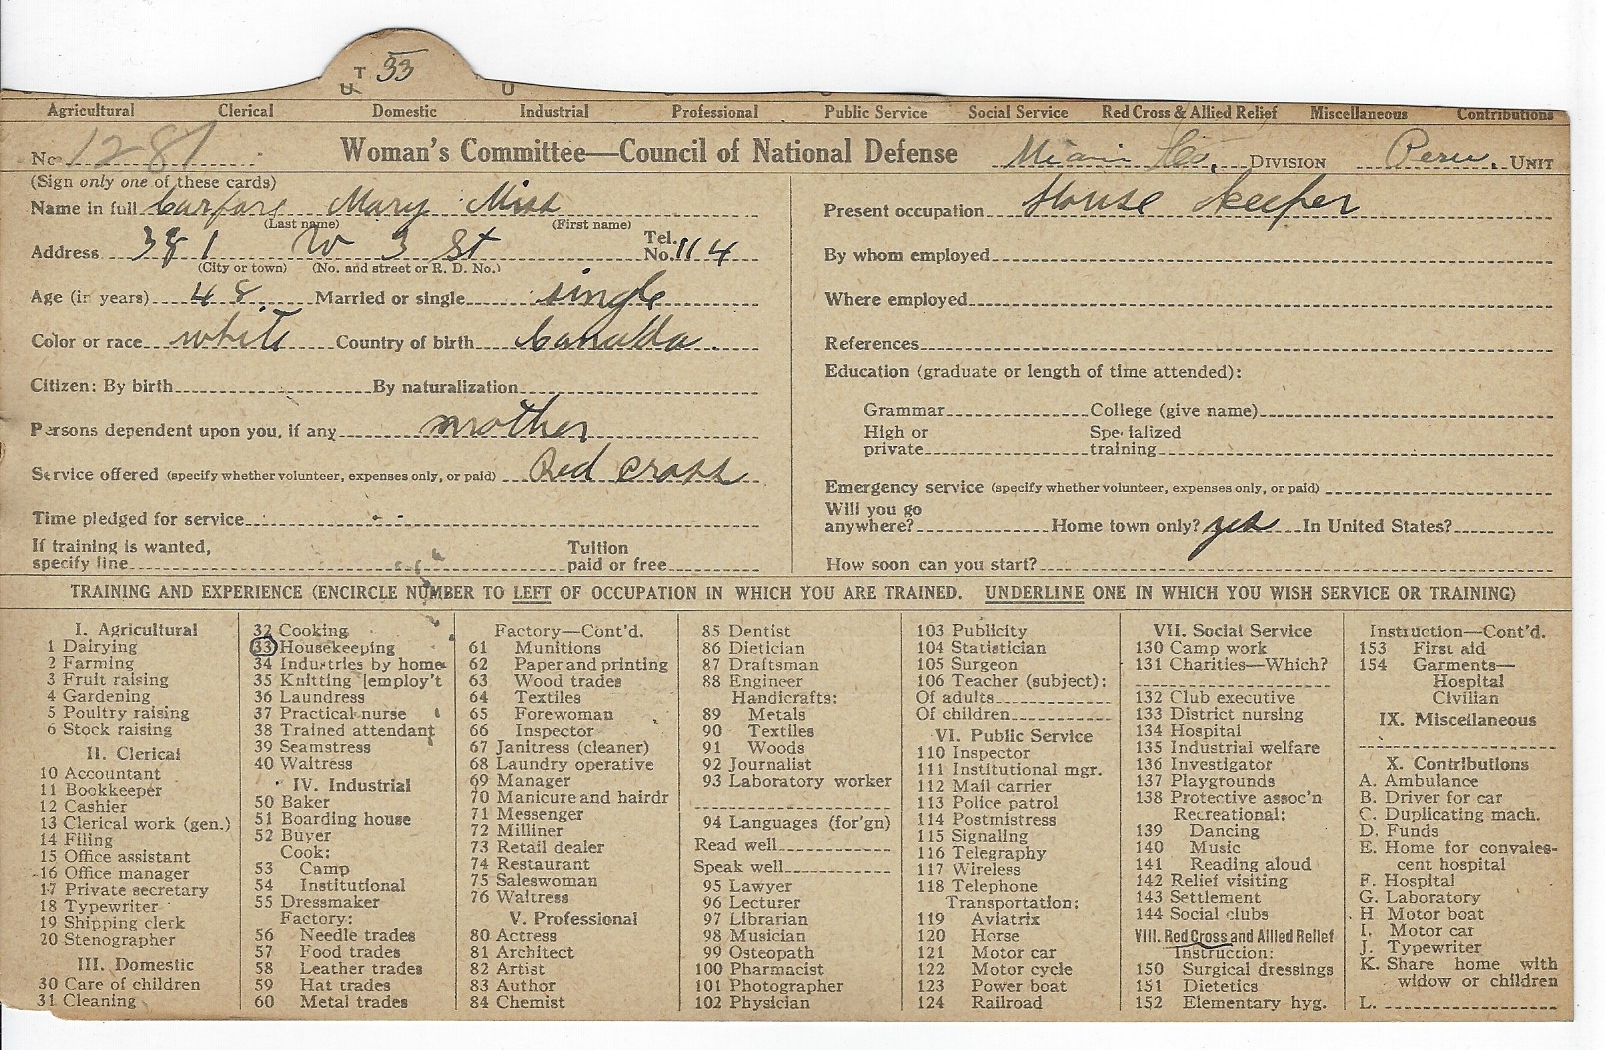 T 33
U U
Agricultural Clerical Domestic Industrial Professional Public Service Social Service Red Cross & Allied Relief Miscellaneous Contributions
No. 1281 Woman's Committee—Council of National Defense Miami Co. DIVISION Peru. UNIT
(Sign only one of these cards)
Name in full Mary Miss
(Last name) (First name)
Address 381 W 3 St Tel. No. 114
(City or town) (No. and street or R. D. No.)
Age (in years) 48 Married or single single
Color or race white Country of birth Canadda.
Citizen: By birth By naturalization
Persons dependent upon you, if any mother
Service offered (specify whether volunteer, expenses only, or paid) Red cross
Time pledged for service
If training is wanted, specify line Tuition paid or free
Present occupation House keeper
By whom employed
Where employed
References
Education (graduate or length of time attended):
Grammar College (give name)
High or private Specialized training
Emergency service (specify whether volunteer, expenses only, or paid)
Will you go anywhere? Home town only? yes In United States?
How soon can you start?
TRAINING AND EXPERIENCE (ENCIRCLE NUMBER TO LEFT OF OCCUPATION IN WHICH YOU ARE TRAINED. UNDERLINE ONE IN WHICH YOU WISH SERVICE OR TRAINING)
I. Agricultural
1 Dairying
2 Farming
3 Fruit raising
4 Gardening
5 Poultry raising
6 Stock raising
II. Clerical
10 Accountant
11 Bookkeeper
12 Cashier
13 Clerical work (gen.)
14 Filing
15 Office assistant
16 Office manager
17 Private secretary
18 Typewriter
19 Shipping clerk
20 Stenographer
III. Domestic
30 Care of children
31 Cleaning
32 Cooking
33 Housekeeping
34 Industries by home
35 Knitting [employ't
36 Laundress
37 Practical nurse
38 Trained attendant
39 Seamstress
40 Waitress
IV. Industrial
50 Baker
51 Boarding house
52 Buyer
Cook:
53 Camp
54 Institutional
55 Dressmaker
Factory:
56 Needle trades
57 Food trades
58 Leather trades
59 Hat trades
60 Metal trades
Factory—Cont'd.
61 Munitions
62 Paper and printing
63 Wood trades
64 Textiles
65 Forewoman
66 Inspector
67 Janitress (cleaner)
68 Laundry operative
69 Manager
70 Manicure and hairdr
71 Messenger
72 Milliner
73 Retail dealer
74 Restaurant
75 Saleswoman
76 Waitress
V. Professional
80 Actress
81 Architect
82 Artist
83 Author
84 Chemist
85 Dentist
86 Dietician
87 Draftsman
88 Engineer
Handicrafts:
89 Metals
90 Textiles
91 Woods
92 Journalist
93 Laboratory worker
94 Languages (for'gn)
Read well
Speak well
95 Lawyer
96 Lecturer
97 Librarian
98 Musician
99 Osteopath
100 Pharmacist
101 Photographer
102 Physician
103 Publicity
104 Statistician
105 Surgeon
106 Teacher (subject):
Of adults
Of children
VI. Public Service
110 Inspector
111 Institutional mgr.
112 Mail carrier
113 Police patrol
114 Postmistress
115 Signaling
116 Telegraphy
117 Wireless
118 Telephone
Transportation:
119 Aviatrix
120 Horse
121 Motor car
122 Motor cycle
123 Power boat
124 Railroad
VII. Social Service
130 Camp work
131 Charities—Which?
132 Club executive
133 District nursing
134 Hospital
135 Industrial welfare
136 Investigator
137 Playgrounds
138 Protective assoc'n
Recreational:
139 Dancing
140 Music
141 Reading aloud
142 Relief visiting
143 Settlement
144 Social clubs
VIII. Red Cross and Allied Relief
Instruction:
150 Surgical dressings
151 Dietetics
152 Elementary hyg.
Instruction—Cont'd.
153 First aid
154 Garments—
Hospital
Civilian
IX. Miscellaneous
X. Contributions
A. Ambulance
B. Driver for car
C. Duplicating mach.
D. Funds
E. Home for convales-
cent hospital
F. Hospital
G. Laboratory
H Motor boat
I. Motor car
J. Typewriter
K. Share home with
widow or children
L.